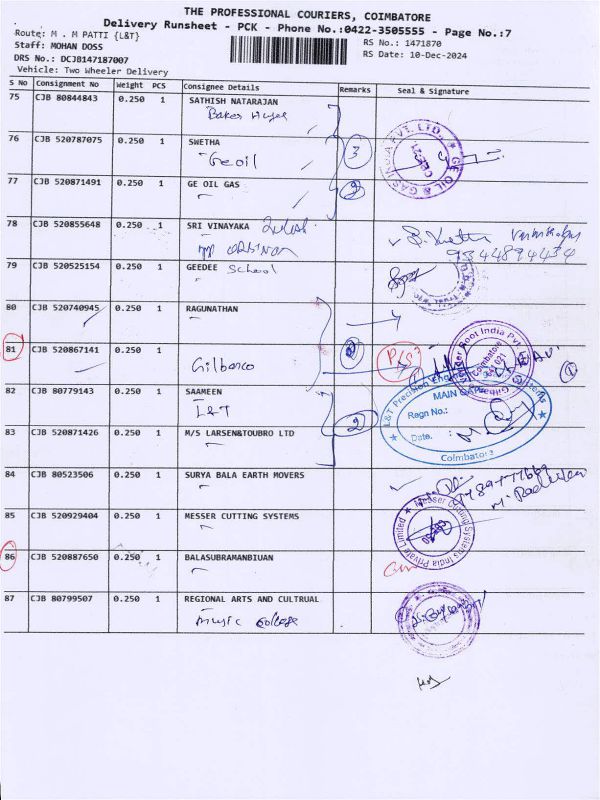 THE PROFESSIONAL COURIERS, COIMBATORE
Delivery Runsheet - PCK - Phone No.:0422-3505555 - Page No.:7
Route: M . M PATTI {L&T}
Staff: MOHAN DOSS
DRS No.: DCJB147187007
Vehicle: Two Wheeler Delivery
RS No.: 1471870
RS Date: 10-Dec-2024
S No Consignment No Weight PCS Consignee Details Remarks Seal & Signature
75 CJB 80844843 0.250 1 SATHISH NATARAJAN
76 CJB 520787075 0.250 1 SWETHA
Geoil
3
77 CJB 520871491 0.250 1 GE OIL GAS
GE OIL & GAS INDIA PVT. LTD.
78 CJB 520855648 0.250 1 SRI VINAYAKA
79 CJB 520525154 0.250 1 GEEDEE School
80 CJB 520740945 0.250 1 RAGUNATHAN
81 CJB 520867141 0.250 1
Gilbarco
P/S
Gilbarco Veeder Root India Pvt
Coimbatore
1
82 CJB 80779143 0.250 1 SAAMEEN
L&T
2
L&T Precision Engineering Systems
MAIN GATE
Regn No.:
Date. :
Coimbatore
83 CJB 520871426 0.250 1 M/S LARSEN&TOUBRO LTD
84 CJB 80523506 0.250 1 SURYA BALA EARTH MOVERS
85 CJB 520929404 0.250 1 MESSER CUTTING SYSTEMS
Messer Cutting Systems India Private Limited
86 CJB 520887650 0.250 1 BALASUBRAMANBIUAN
87 CJB 80799507 0.250 1 REGIONAL ARTS AND CULTRUAL
music college